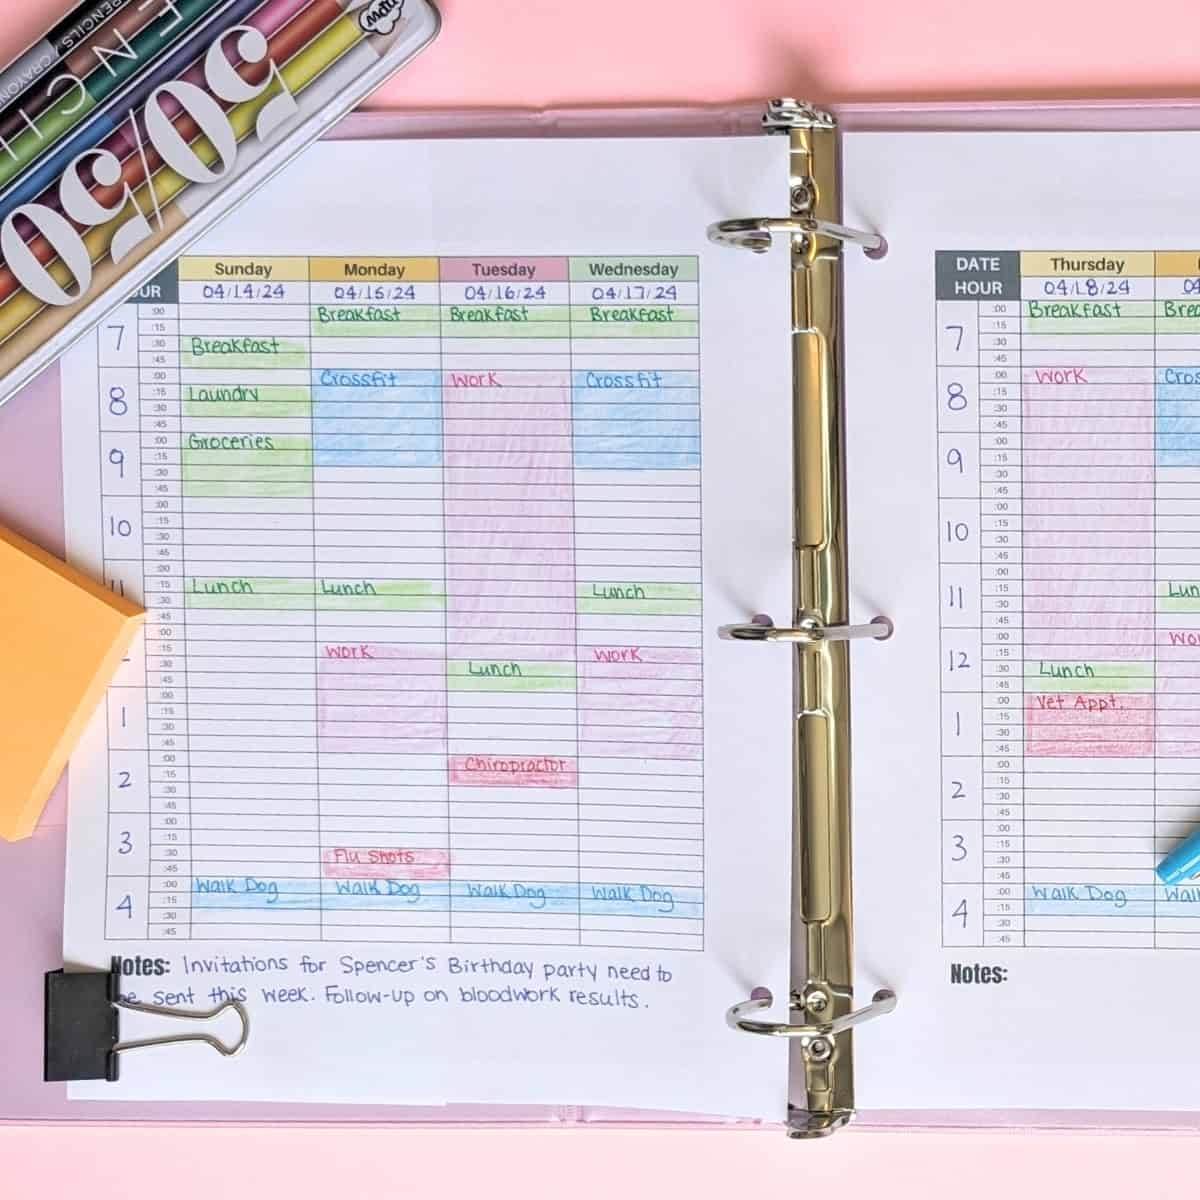 PENCILS / CRAYONS
50/50
Sunday Monday Tuesday Wednesday
04/14/24 04/15/24 04/16/24 04/17/24
7 :00 Breakfast Breakfast Breakfast
:15
:30 Breakfast
:45
8 :00 Crossfit Work Crossfit
:15 Laundry
:30
:45
9 :00 Groceries
:15
:30
:45
10 :00
:15
:30
:45
:00
:15 Lunch Lunch Lunch
:30
:45
:00
:15 Work Work
:30 Lunch
:45
1 :00
:15
:30
:45
2 :00 Chiropractor
:15
:30
:45
3 :00
:15
:30 Flu Shots
:45
4 :00 Walk Dog Walk Dog Walk Dog Walk Dog
:15
:30
:45
Notes: Invitations for Spencer's Birthday party need to
be sent this week. Follow-up on bloodwork results.
DATE Thursday
HOUR 04/18/24
7 :00 Breakfast
:15
:30
:45
8 :00 Work
:15
:30
:45
9 :00
:15
:30
:45
10 :00
:15
:30
:45
11 :00
:15
:30
:45
12 :00
:15
:30 Lunch
:45
1 :00 Vet Appt.
:15
:30
:45
2 :00
:15
:30
:45
3 :00
:15
:30
:45
4 :00 Walk Dog
:15
:30
:45
Notes: